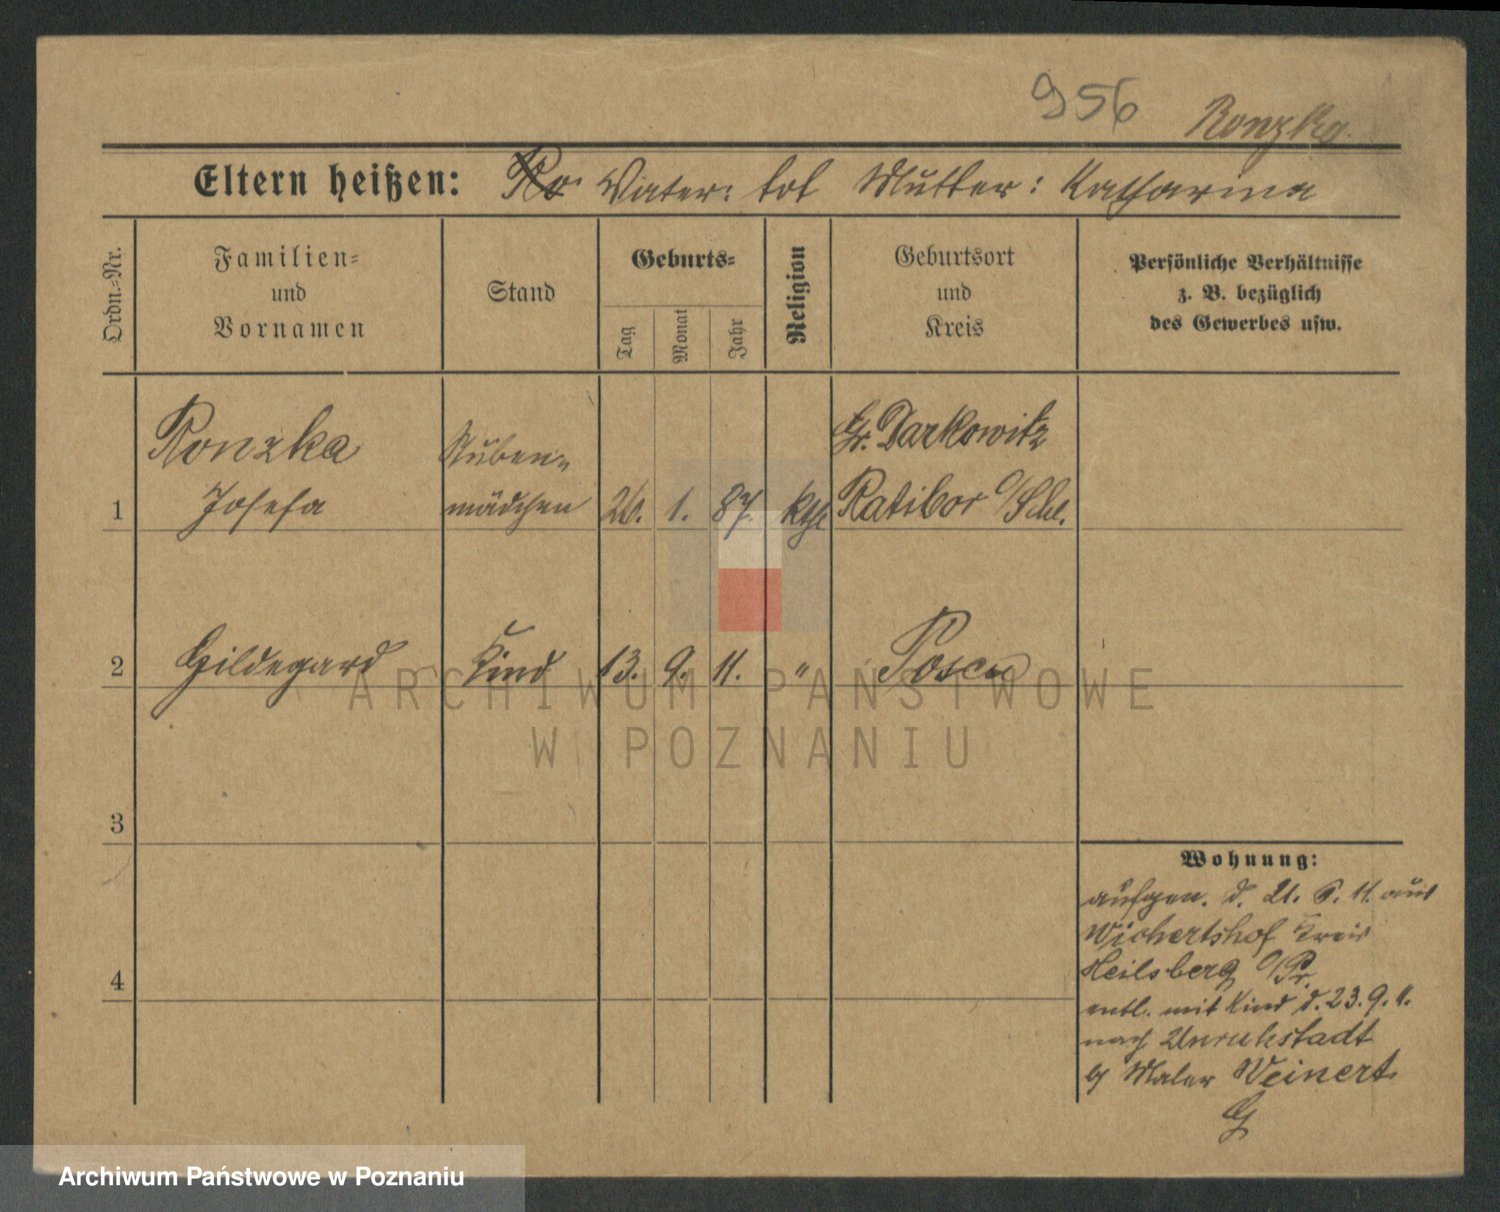 956 Ronzka
Eltern heißen: Vater: tot Mutter: Katharina
Ordn.-Nr.
Familien-
und
Vornamen
Stand
Geburts-
Tag
Monat
Jahr
Religion
Geburtsort
und
Kreis
Persönliche Verhältnisse
z. B. bezüglich
des Gewerbes usw.
Ronzka
Josefa
Stuben-
mädchen
1
26. 1. 87. kth
Gr. Darkowitz
Ratibor O/Schl.
2 Hildegard Kind 13. 9. 11. " Posen
3
4
Wohnung:
aufgen. d. 21. 6. 11. aus
Wichertshof Kreis
Heilsberg O/Pr.
entl. mit Kind d. 23. 9. 11.
nach Unruhstadt
b/ Maler Weinert
ARCHIWUM PAŃSTWOWE
W POZNANIU
Archiwum Państwowe w Poznaniu